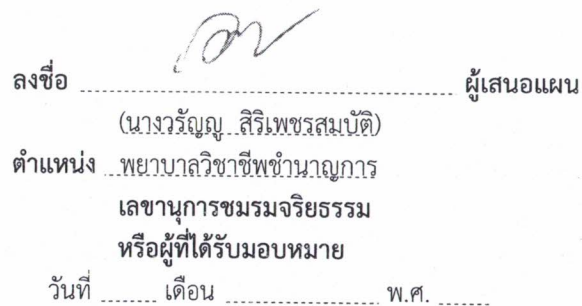 ลงชื่อ ........................................................ ผู้เสนอแผน
(นางวรัญญู สิริเพชรสมบัติ)
ตำแหน่ง พยาบาลวิชาชีพชำนาญการ
เลขานุการชมรมจริยธรรม
หรือผู้ที่ได้รับมอบหมาย
วันที่ ....... เดือน .................... พ.ศ. .......